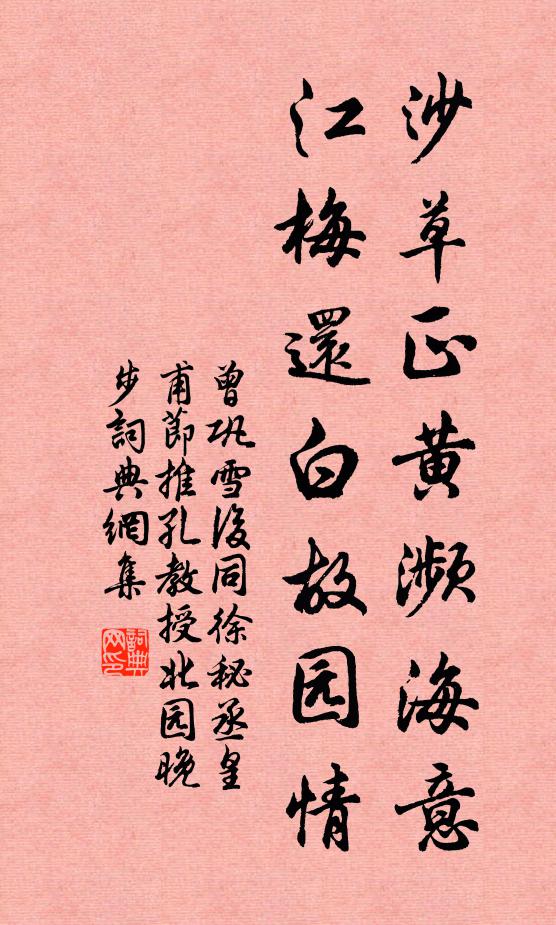 沙草正黄濒海意
江梅還白故园情
曾巩雪後同徐秘丞皇
甫節推孔教授北园晚
步詞典網集
詞典网印